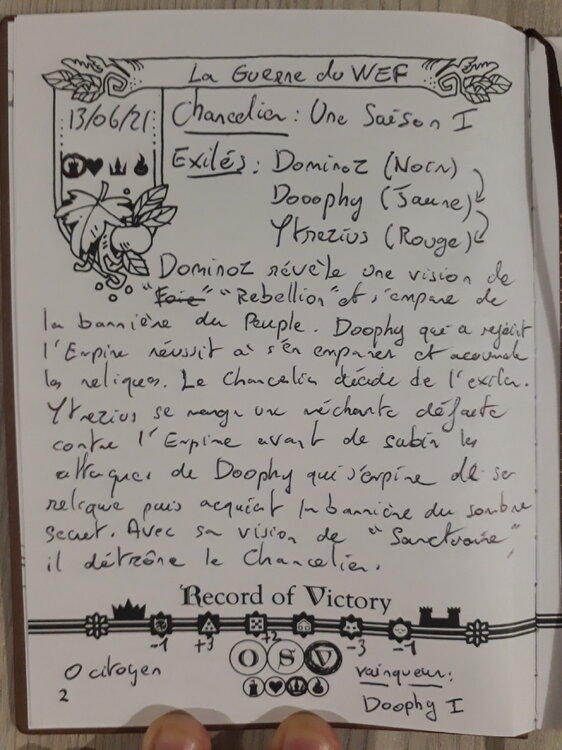 La Guerre du WEF
13/06/21
Chancelier : Une Saison I
Exilés : Dominoz (Noir)
Dooophy (Jaune)
Ytrezius (Rouge)
Dominoz révèle une vision de
"Foie" "Rebellion" et s'empare de
la bannière du Peuple. Doophy qui a rejoint
l'Empire réussit à s'en emparer et accumule
les reliques. Le Chancelier décide de l'exiler.
Ytrezius se mange une méchante défaite
contre l'Empire avant de subir les
attaques de Doophy qui s'empare de ses
relique puis acquiert la bannière du sombre
secret. Avec sa vision de "Sanctuaire",
il détrône le Chancelier.
Record of Victory
-1 +3 +2 -3 -1
O S V
0 citoyen
2
vainqueur :
Doophy I